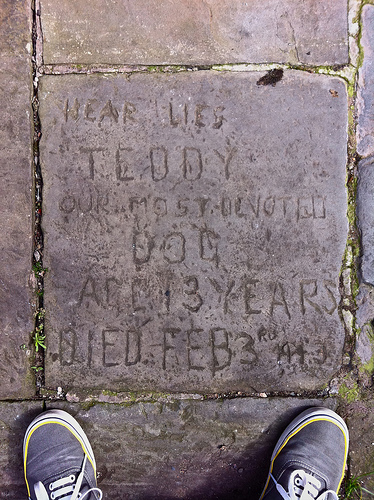 HEAR LIES
TEDDY
OUR MOST DEVOTED
DOG
AGE 13 YEARS
DIED FEB 3RD